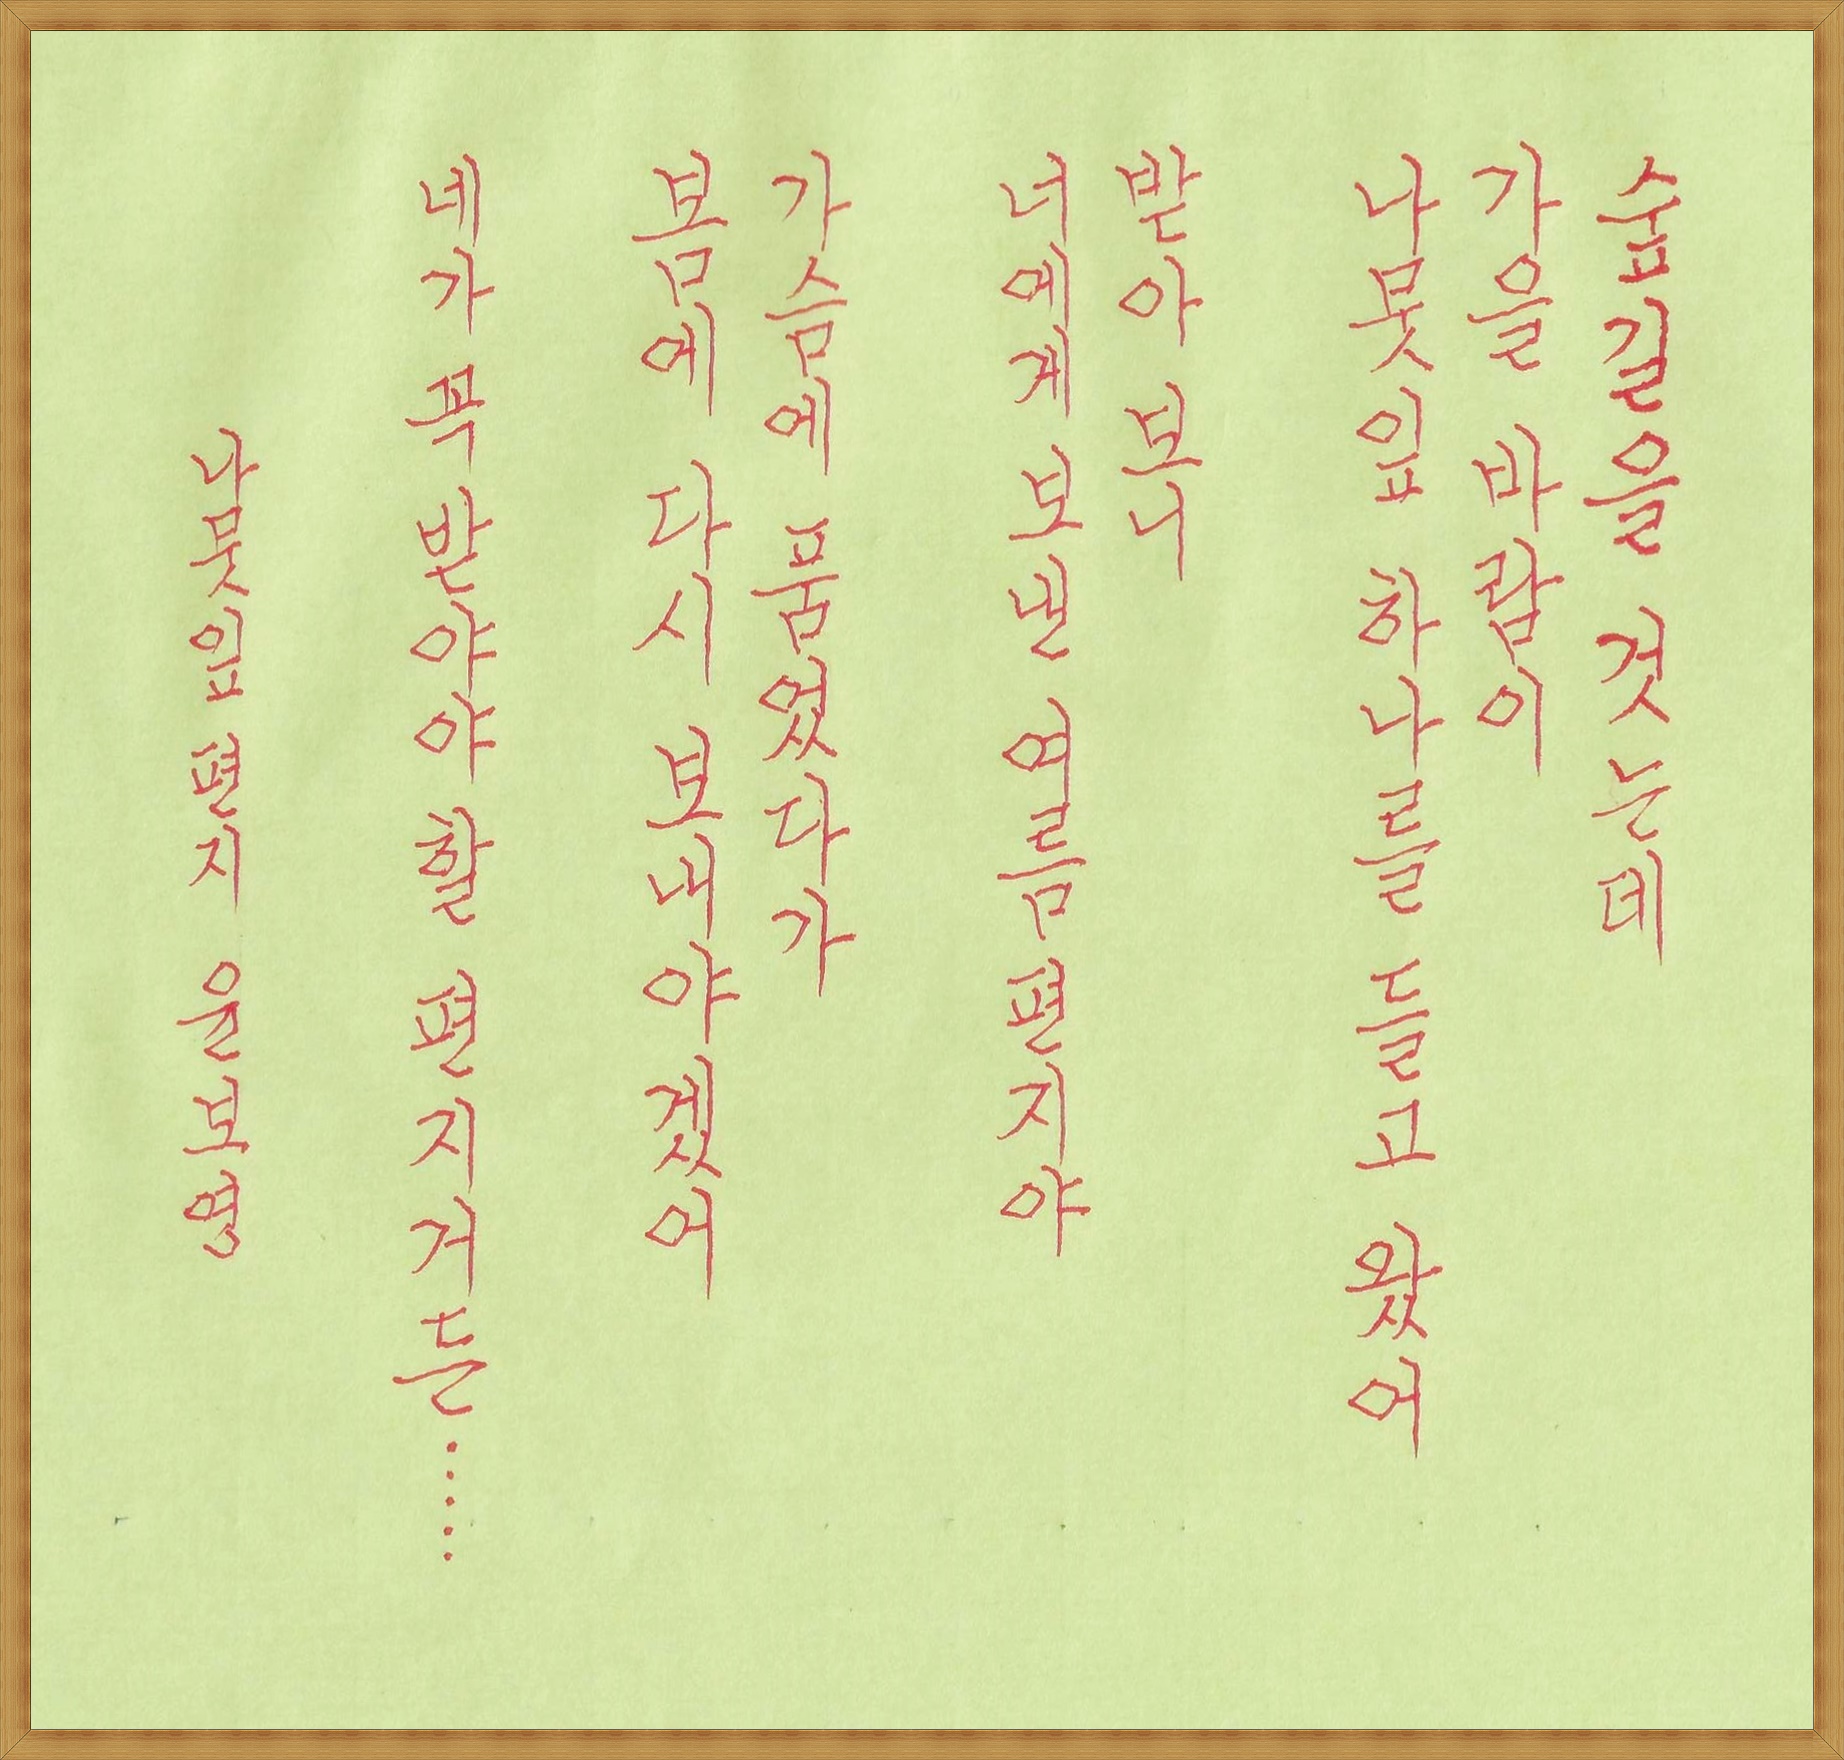 숲길을 걷는데
가을 바람이
나뭇잎 하나를 들고 왔어
받아 보니
너에게 보낸 여름편지야
가슴에 품었다가
봄에 다시 보내야겠어
네가 꼭 받아야 할 편지거든.....
나뭇잎 편지 윤보영